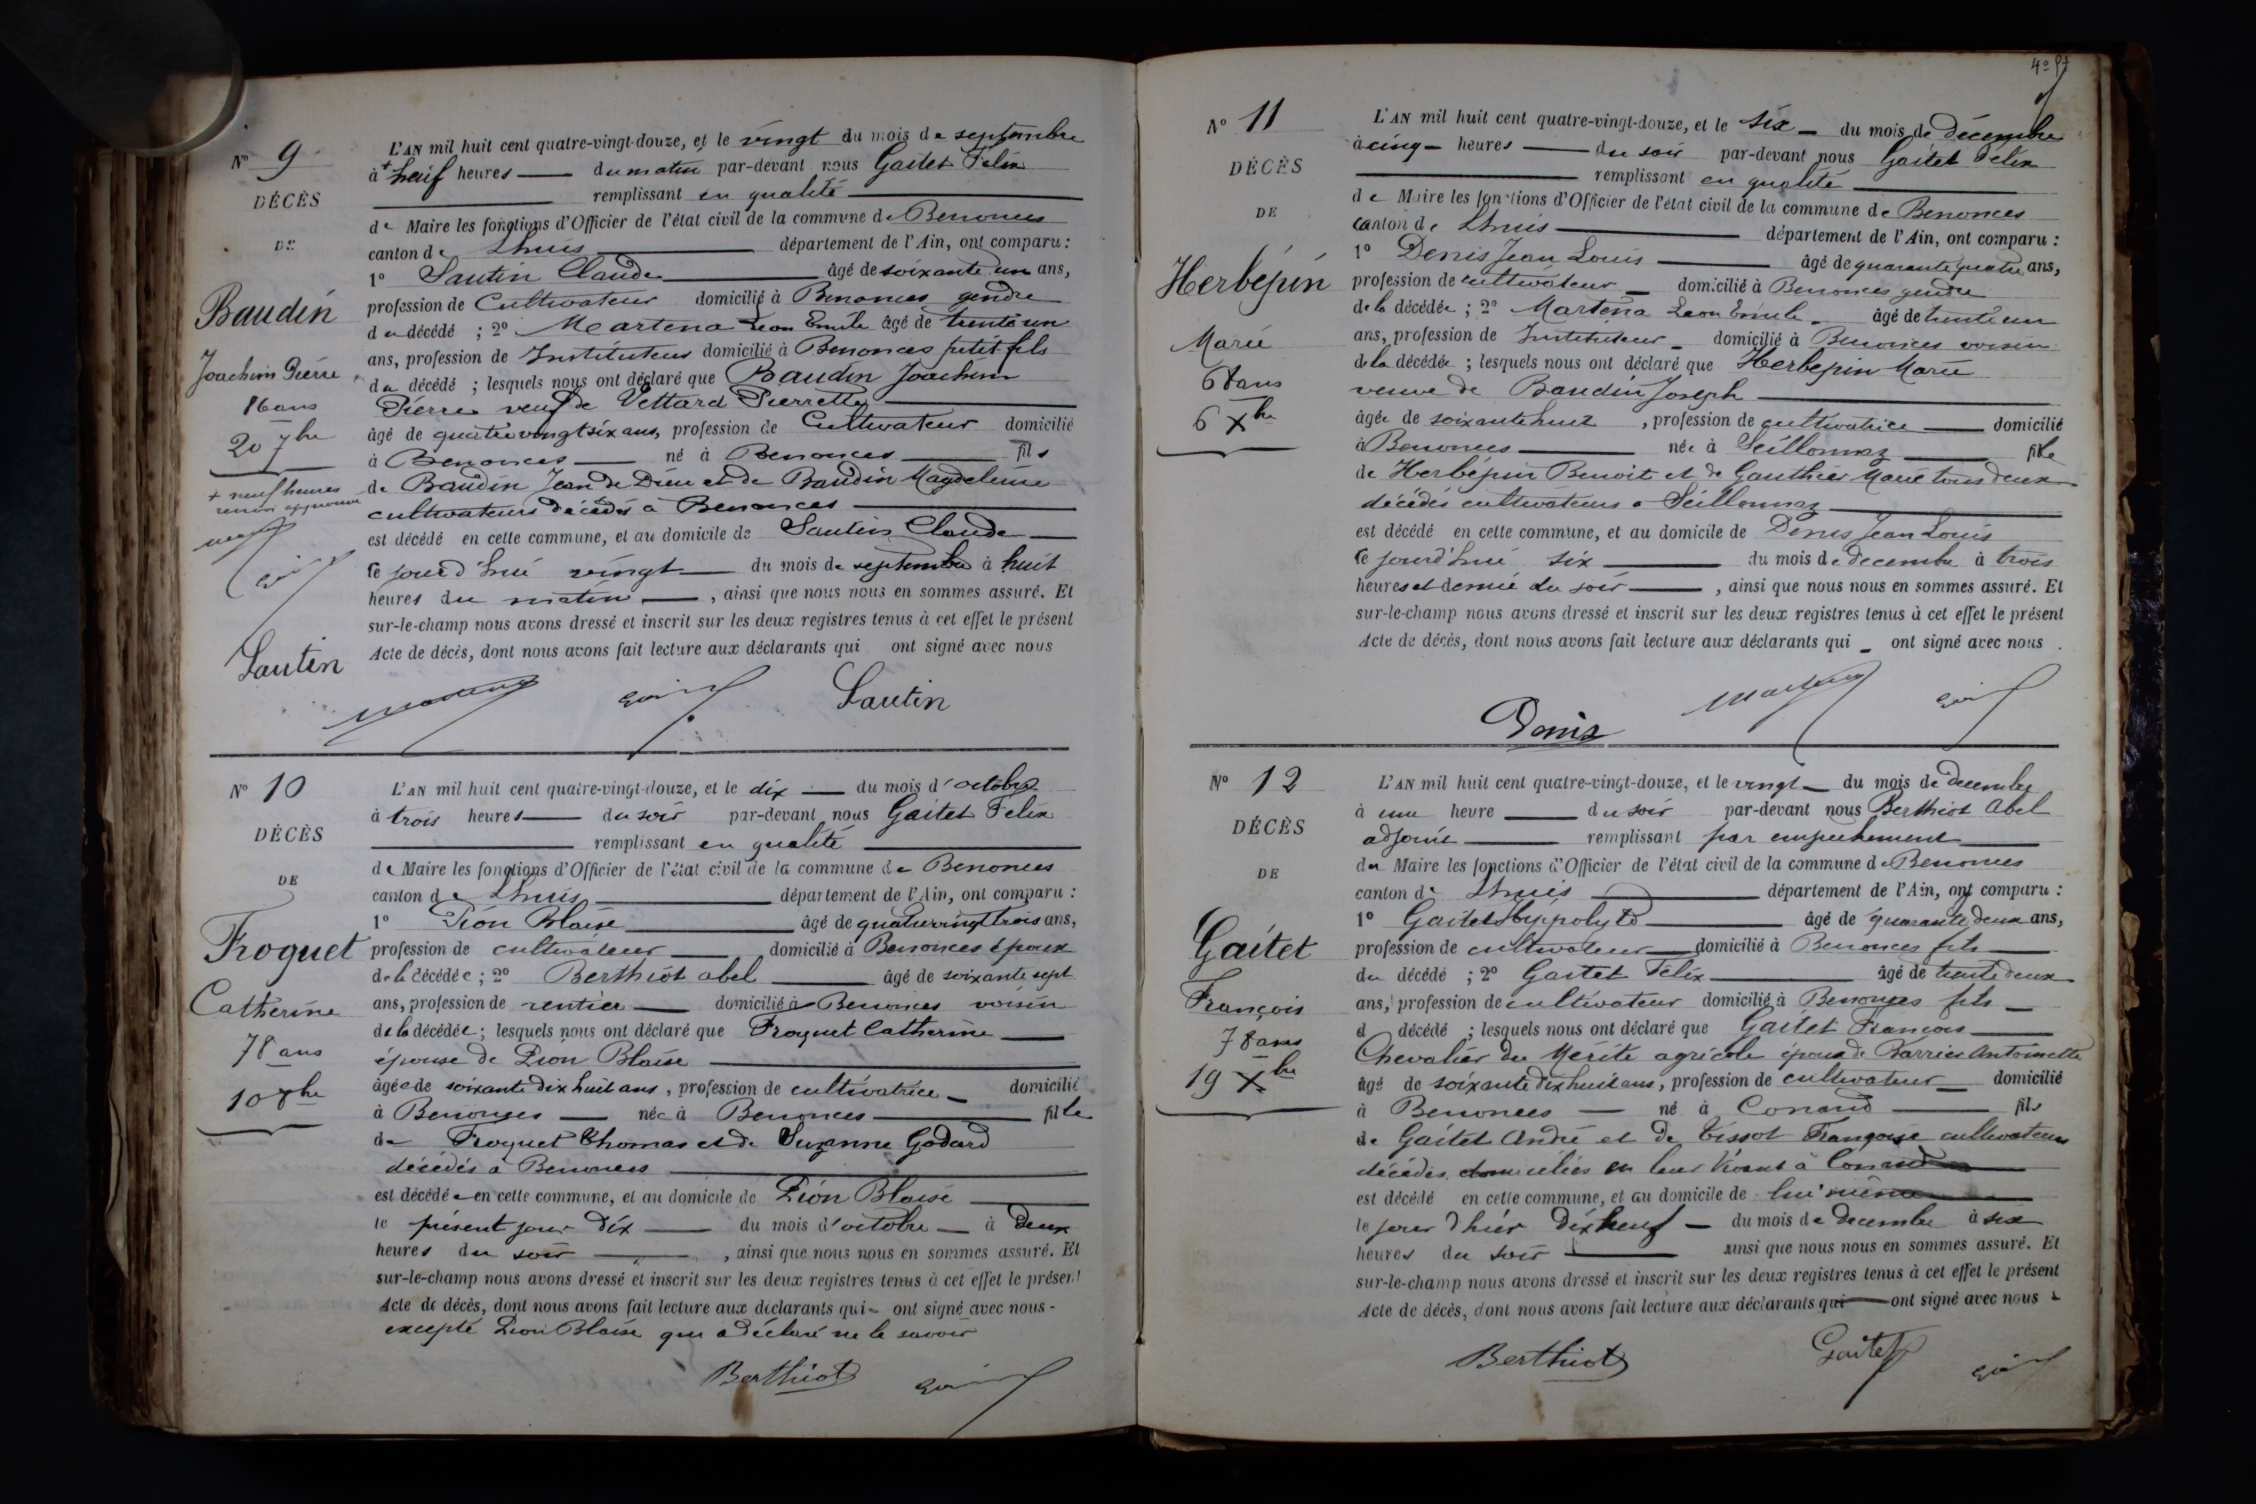 N° 9
DÉCÈS
DE
Baudin
Joachim Pierre
86 ans
20 7bre
+ neuf heures
renvoi approuvé
Sautin
L'AN mil huit cent quatre-vingt-douze, et le vingt du mois de septembre
à + neuf heures du matin par-devant nous Gaitet Félix
remplissant en qualité
de Maire les fonctions d'Officier de l'état civil de la commune de Benonces
canton de Lhuis département de l'Ain, ont comparu :
1° Sautin Claude âgé de soixante un ans,
profession de Cultivateur domicilié à Benonces gendre
du décédé ; 2° Martena Leon Emile âgé de trente un
ans, profession de Instituteur domicilié à Benonces petit fils
du décédé ; lesquels nous ont déclaré que Baudin Joachim
Pierre veuf de Vettard Pierrette
âgé de quatre vingt six ans, profession de Cultivateur domicilié
à Benonces né à Benonces fils
de Baudin Jean de Dieu et de Baudin Magdeleine
cultivateurs décédés à Benonces
est décédé en cette commune, et au domicile de Sautin Claude
le jourd'hui vingt du mois de septembre à huit
heures du matin, ainsi que nous nous en sommes assuré. Et
sur-le-champ nous avons dressé et inscrit sur les deux registres tenus à cet effet le présent
Acte de décès, dont nous avons fait lecture aux déclarants qui ont signé avec nous
Sautin
N° 10
DÉCÈS
DE
Froquet
Catherine
78 ans
10 8bre
L'AN mil huit cent quatre-vingt-douze, et le dix du mois d'octobre
à trois heures du soir par-devant nous Gaitet Félix
remplissant en qualité
de Maire les fonctions d'Officier de l'état civil de la commune de Benonces
canton de Lhuis département de l'Ain, ont comparu :
1° Pion Blaise âgé de quatre vingt trois ans,
profession de cultivateur domicilié à Benonces époux
de la décédée ; 2° Berthiot abel âgé de soixante sept
ans, profession de rentier domicilié à Benonces voisin
de la décédée ; lesquels nous ont déclaré que Froquet Catherine
épouse de Pion Blaise
âgée de soixante dix huit ans, profession de cultivatrice domicilié
à Benonces née à Benonces fille
de Froquet Thomas et de Suzanne Godard
décédés à Benonces
est décédée en cette commune, et au domicile de Pion Blaise
le présent jour dix du mois d'octobre à deux
heures du soir, ainsi que nous nous en sommes assuré. Et
sur-le-champ nous avons dressé et inscrit sur les deux registres tenus à cet effet le présent
Acte de décès, dont nous avons fait lecture aux déclarants qui ont signé avec nous
excepté Pion Blaise qui a déclaré ne le savoir
Berthiot
N° 11
DÉCÈS
DE
Herbépin
Marie
68 ans
6 Xbre
L'AN mil huit cent quatre-vingt-douze, et le six du mois de décembre
à cinq heures du soir par-devant nous Gaitet Félix
remplissant en qualité
de Maire les fonctions d'Officier de l'état civil de la commune de Benonces
canton de Lhuis département de l'Ain, ont comparu :
1° Denis Jean Louis âgé de quarante quatre ans,
profession de cultivateur domicilié à Benonces gendre
de la décédée ; 2° Martena Leon Emile âgé de trente un
ans, profession de Instituteur domicilié à Benonces voisin
de la décédée ; lesquels nous ont déclaré que Herbepin Marie
veuve de Baudin Joseph
âgée de soixante huit, profession de cultivatrice domicilié
à Benonces née à Seillonnaz fille
de Herbépin Benoit et de Gauthier Marie tous deux
décédés cultivateurs à Seillonnaz
est décédé en cette commune, et au domicile de Denis Jean Louis
le jourd'hui six du mois de decembre à trois
heures et demie du soir, ainsi que nous nous en sommes assuré. Et
sur-le-champ nous avons dressé et inscrit sur les deux registres tenus à cet effet le présent
Acte de décès, dont nous avons fait lecture aux déclarants qui ont signé avec nous
Denis
N° 12
DÉCÈS
DE
Gaitet
François
78 ans
19 Xbre
L'AN mil huit cent quatre-vingt-douze, et le vingt du mois de decembre
à une heure du soir par-devant nous Berthiot Abel
adjoint remplissant par empechement
du Maire les fonctions d'Officier de l'état civil de la commune de Benonces
canton de Lhuis département de l'Ain, ont comparu :
1° Gaitet Hippolyte âgé de quarante deux ans,
profession de cultivateur domicilié à Benonces fils
du décédé ; 2° Gaitet Félix âgé de trente deux
ans, profession de cultivateur domicilié à Benonces fils
d décédé ; lesquels nous ont déclaré que Gaitet François
Chevalier du Mérite agricole époux de Barrier Antoinette
âgé de soixante dix huit ans, profession de cultivateur domicilié
à Benonces né à Conand fils
de Gaitet André et de Tissot Françoise cultivateurs
décédés domiciliés en leur vivant à Conand
est décédé en cette commune, et au domicile de lui même
le jour d'hier dix neuf du mois de decembre à six
heures du soir ainsi que nous nous en sommes assuré. Et
sur-le-champ nous avons dressé et inscrit sur les deux registres tenus à cet effet le présent
Acte de décès, dont nous avons fait lecture aux déclarants qui ont signé avec nous
Berthiot Gaitet